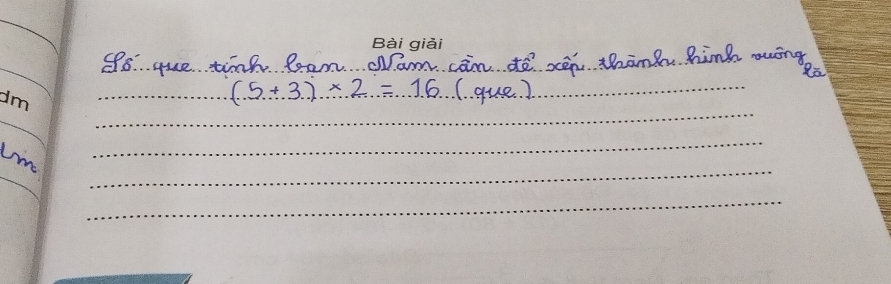 Bài giải
Số que tính bạn Nam cần để xếp thành hình vuông
là
(5 + 3) × 2 = 16 (que)
dm